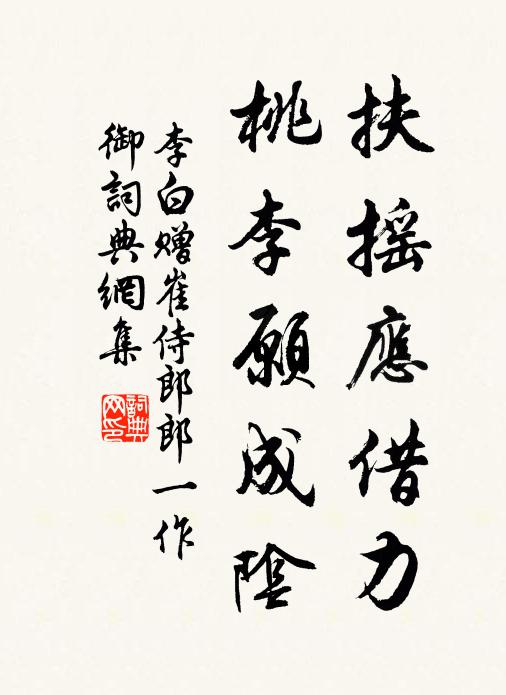 扶摇應借力
桃李願成陰
李白贈崔侍郎郎一作
御詞典網集
詞典网印